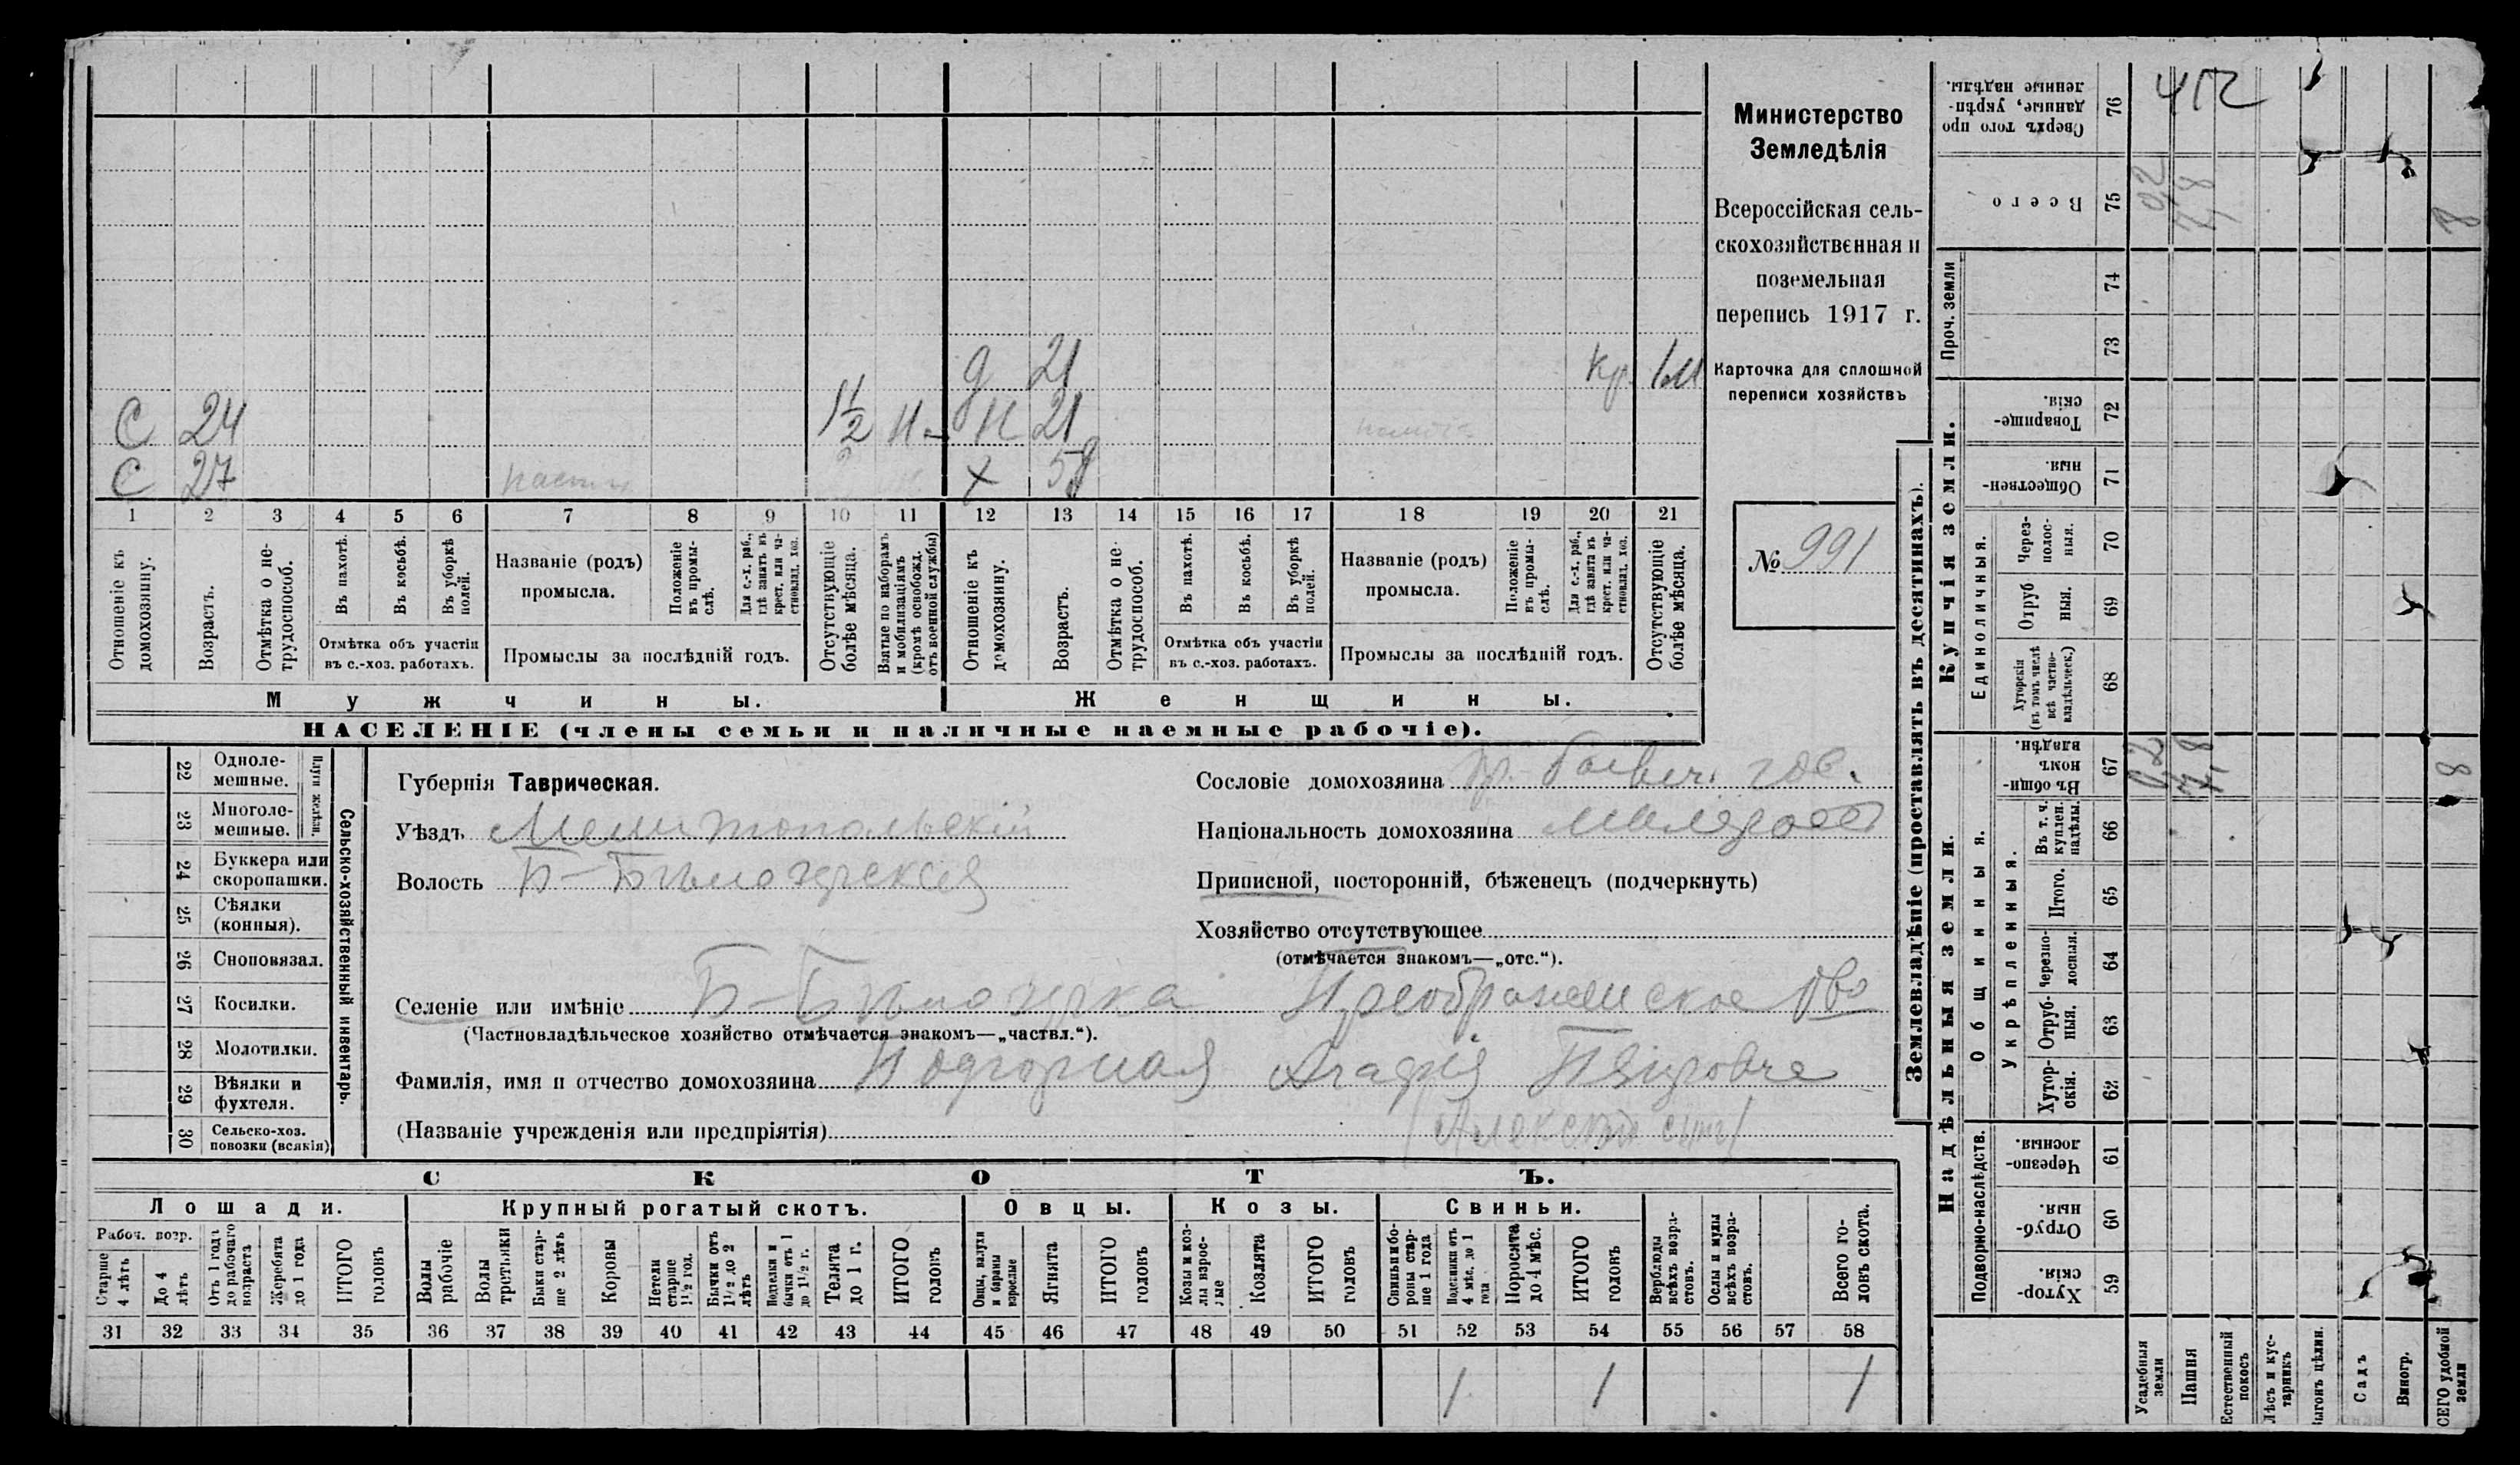 Министерство
Земледѣлія
Всероссійская сель-
скохозяйственная и
поземельная
перепись 1917 г.
Карточка для сплошной
переписи хозяйствъ
№ 991
д 21 кр. 1м
С 24 1 1/2 Н 21
С 27 х 58
1 2 3 4 5 6 7 8 9 10 11 12 13 14 15 16 17 18 19 20 21
Отношеніе къ домохозяину.
Возрастъ.
Отмѣтка о не-трудоспособ.
Въ пахотѣ.
Въ косьбѣ.
Въ уборкѣ полей.
Отмѣтка объ участіи
въ с.-хоз. работахъ.
Названіе (родъ)
промысла.
Положеніе въ промы-слѣ.
Для с.-х. раб., гдѣ занятъ въ крест. или ча-стновлад. хоз.
Промыслы за послѣдній годъ.
Отсутствующіе болѣе мѣсяца.
Взятые по наборамъ и мобилизаціямъ (кромѣ освобожд. отъ военной службы)
Отношеніе къ домохозяину.
Возрастъ.
Отмѣтка о не-трудоспособ.
Въ пахотѣ.
Въ косьбѣ.
Въ уборкѣ полей.
Отмѣтка объ участіи
въ с.-хоз. работахъ.
Названіе (родъ)
промысла.
Положеніе въ промы-слѣ.
Для с.-х. раб., гдѣ занята въ крест. или ча-стновлад. хоз.
Промыслы за послѣдній годъ.
Отсутствующіе болѣе мѣсяца.
Мужчины.
Женщины.
НАСЕЛЕНІЕ (члены семьи и наличные наемные рабочіе).
22 Одноле-мешные.
23 Многоле-мешные.
Плуги желѣзн.
24 Буккера или скоропашки.
25 Сѣялки (конныя).
26 Сноповязал.
27 Косилки.
28 Молотилки.
29 Вѣялки и фухтеля.
30 Сельско-хоз. повозки (всякія)
Сельско-хозяйственный инвентарь.
Губернія Таврическая.
Уѣздъ Мелитопольскій
Волость Б-Бѣлозерская
Сословіе домохозяина
Національность домохозяина малоросс
Приписной, посторонній, бѣженецъ (подчеркнуть)
Хозяйство отсутствующее
(отмѣчается знакомъ—„отс.“).
Селеніе или имѣніе Б-Бѣлозерка Преображенское О-во
(Частновладѣльческое хозяйство отмѣчается знакомъ—„частвл.“).
Фамилія, имя и отчество домохозяина Подгорная Агафія Петровна
(Названіе учрежденія или предпріятія)
СКОТЪ.
Лошади. Крупный рогатый скотъ. Овцы. Козы. Свиньи.
Рабоч. возр.
Старше 4 лѣтъ
До 4 лѣтъ
Отъ 1 года до рабочаго возраста
Жеребята до 1 года
ИТОГО головъ
Волы рабочіе
Волы третьяки
Быки стар-ше 2 лѣтъ
Коровы
Нетели старше 1½ год.
Бычки отъ 1½ до 2 лѣтъ
Подтелки и бычки отъ 1 до 1½ г.
Телята до 1 г.
ИТОГО головъ
Овцы, валухи и бараны взрослые
Ягнята
ИТОГО головъ
Козы и коз-лы взрос-лые
Козлята
ИТОГО головъ
Свиньи и бо-ровы стар-ше 1 года
Подсвинки отъ 4 мѣс. до 1 года
Поросята до 4 мѣс.
ИТОГО головъ
Верблюды всѣхъ возра-стовъ.
Ослы и мулы всѣхъ возра-стовъ.
Всего го-ловъ скота.
31 32 33 34 35 36 37 38 39 40 41 42 43 44 45 46 47 48 49 50 51 52 53 54 55 56 57 58
1 1 1
Землевладѣніе (проставлять въ десятинахъ).
Надѣльныя земли.
Купчія земли.
Проч. земли
Подворно-наслѣдств.
Общинныя.
Укрѣпленныя.
Единоличныя.
76 Сверхъ того про-данные, укрѣп-ленные надѣлы. 412
75 Всего 0,2 7,8 8
74
73
72 Товарище-скія.
71 Обществен-ныя.
70 Через-полос-ныя.
69 Отруб-ныя.
68 Хуторскія (въ томъ числѣ всѣ частно-владѣльческ.)
67 Въ общи-номъ владѣн. 0,2 7,8 8
66 Въ т. ч. куплен. надѣлы.
65 Итого.
64 Черезпо-лосныя.
63 Отруб-ныя.
62 Хутор-скія.
61 Черезпо-лосныя.
60 Отруб-ныя.
59 Хутор-скія.
Усадебныя земли
Пашня
Естественный покосъ
Лѣсъ и кус-тарникъ
Выгонъ цѣлин.
Садъ
Виногр.
ВСЕГО удобной земли